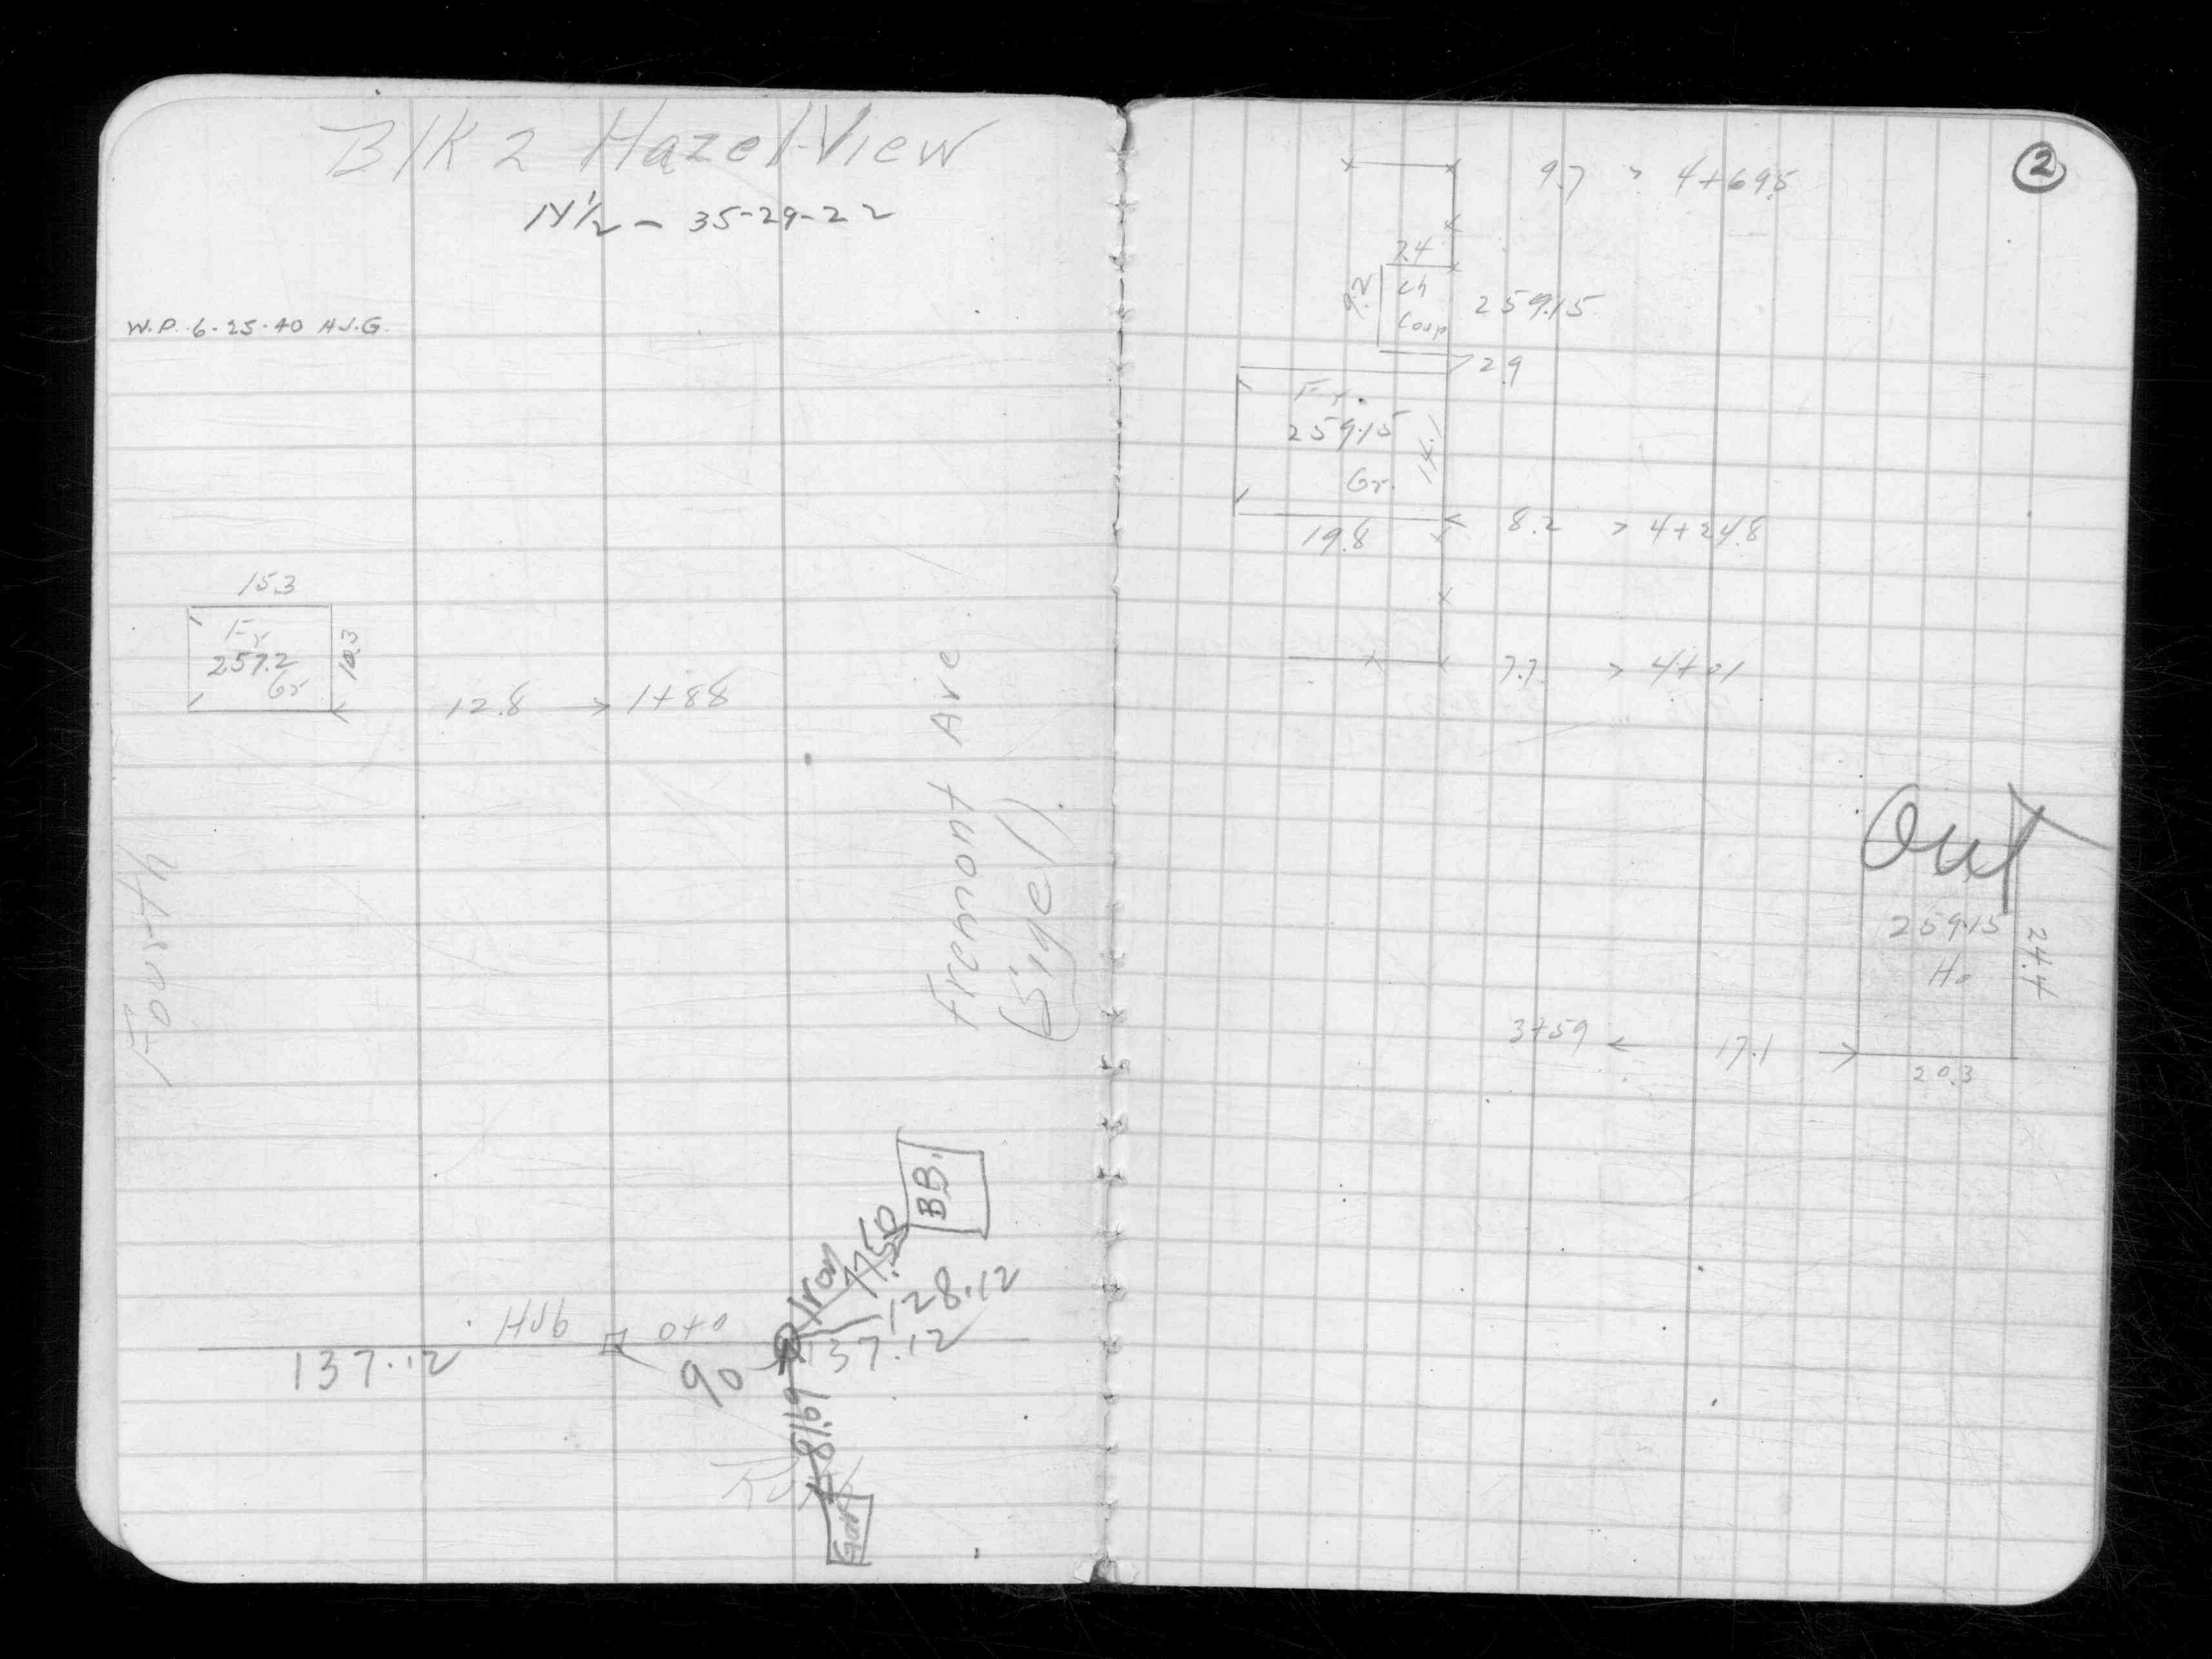 Blk 2 Hazel View
N½ - 35-29-22
W.P. 6-25-40 H.J.G.
15.3
Fr
257.2
Gr
10.3
12.8 → 1+88
Fourth
Fremont Ave.
(Sigel)
BB.
77.50
Iron
128.12
Hub 0+0
137.12
90
137.12
81.69
Gar
2
9.7 > 4+69.5
7.4
9.2
ch
Coup
259.15
2.9
Fr.
259.15
14.1
Gr.
19.8
8.2 > 4+24.8
7.7 > 4+01
Out
259.15
24.4
Ho
3+59 ← 17.1 →
20.3